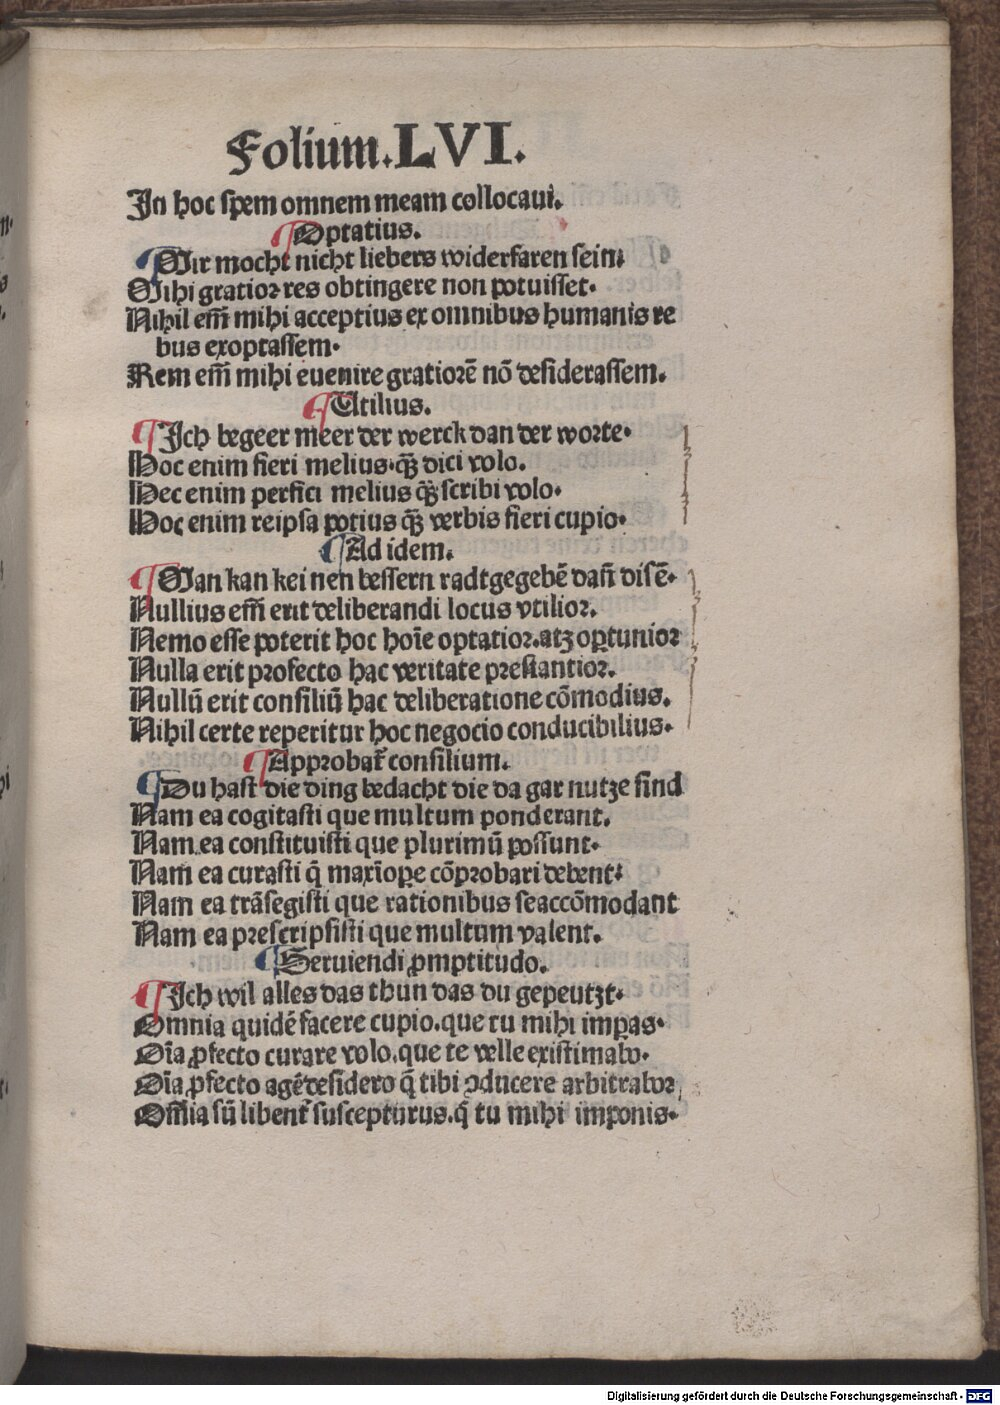 Folium.LVI.
In hoc spem omnem meam collocaui.
¶Optatius.
¶Mir mocht nicht liebers widerfaren sein.
Mihi gratior res obtingere non potuisset.
Nihil em̄ mihi acceptius ex omnibus humanis re
bus exoptassem.
Rem em̄ mihi euenire gratiorē nō desiderassem.
¶Utilius.
¶Ich begeer meer der werck dan der worte.
Hoc enim fieri melius.q̄ꝫ dici volo.
Hec enim perfici melius q̄ꝫ scribi volo.
Hoc enim reipsa potius q̄ꝫ verbis fieri cupio.
¶Ad idem.
¶Man kan kei nen bessern radt gegebē dañ disē.
Nullius em̄ erit deliberandi locus vtilior.
Nemo esse poterit hoc hoīe optatior.atꝫ oꝑtunior
Nulla erit profecto hac veritate prestantior.
Nullū erit consiliū hac deliberatione cōmodius.
Nihil certe reperitur hoc negocio conducibilius.
¶Approbat᷑ consilium.
¶Du hast die ding bedacht die da gar nutze sind
Nam ea cogitasti que multum ponderant.
Nam ea constituisti que plurimū possunt.
Nam ea curasti q̄ maxīoꝑe cōprobari debent.
Nam ea trāsegisti que rationibus se accōmodant
Nam ea prescripsisti que multum valent.
¶Seruiendi ꝓmptitudo.
¶Ich wil alles das thun das du gepeutzt.
Omnia quidē facere cupio.que tu mihi imꝑas.
Oīa ꝓfecto curare volo.que te velle existimabo.
Oīa ꝓfecto agē desidero q̄ tibi ↄducere arbitrabor
Om̄ia sū libent᷑ suscepturus.q̄ tu mihi imponis.
Digitalisierung gefördert durch die Deutsche Forschungsgemeinschaft - DFG